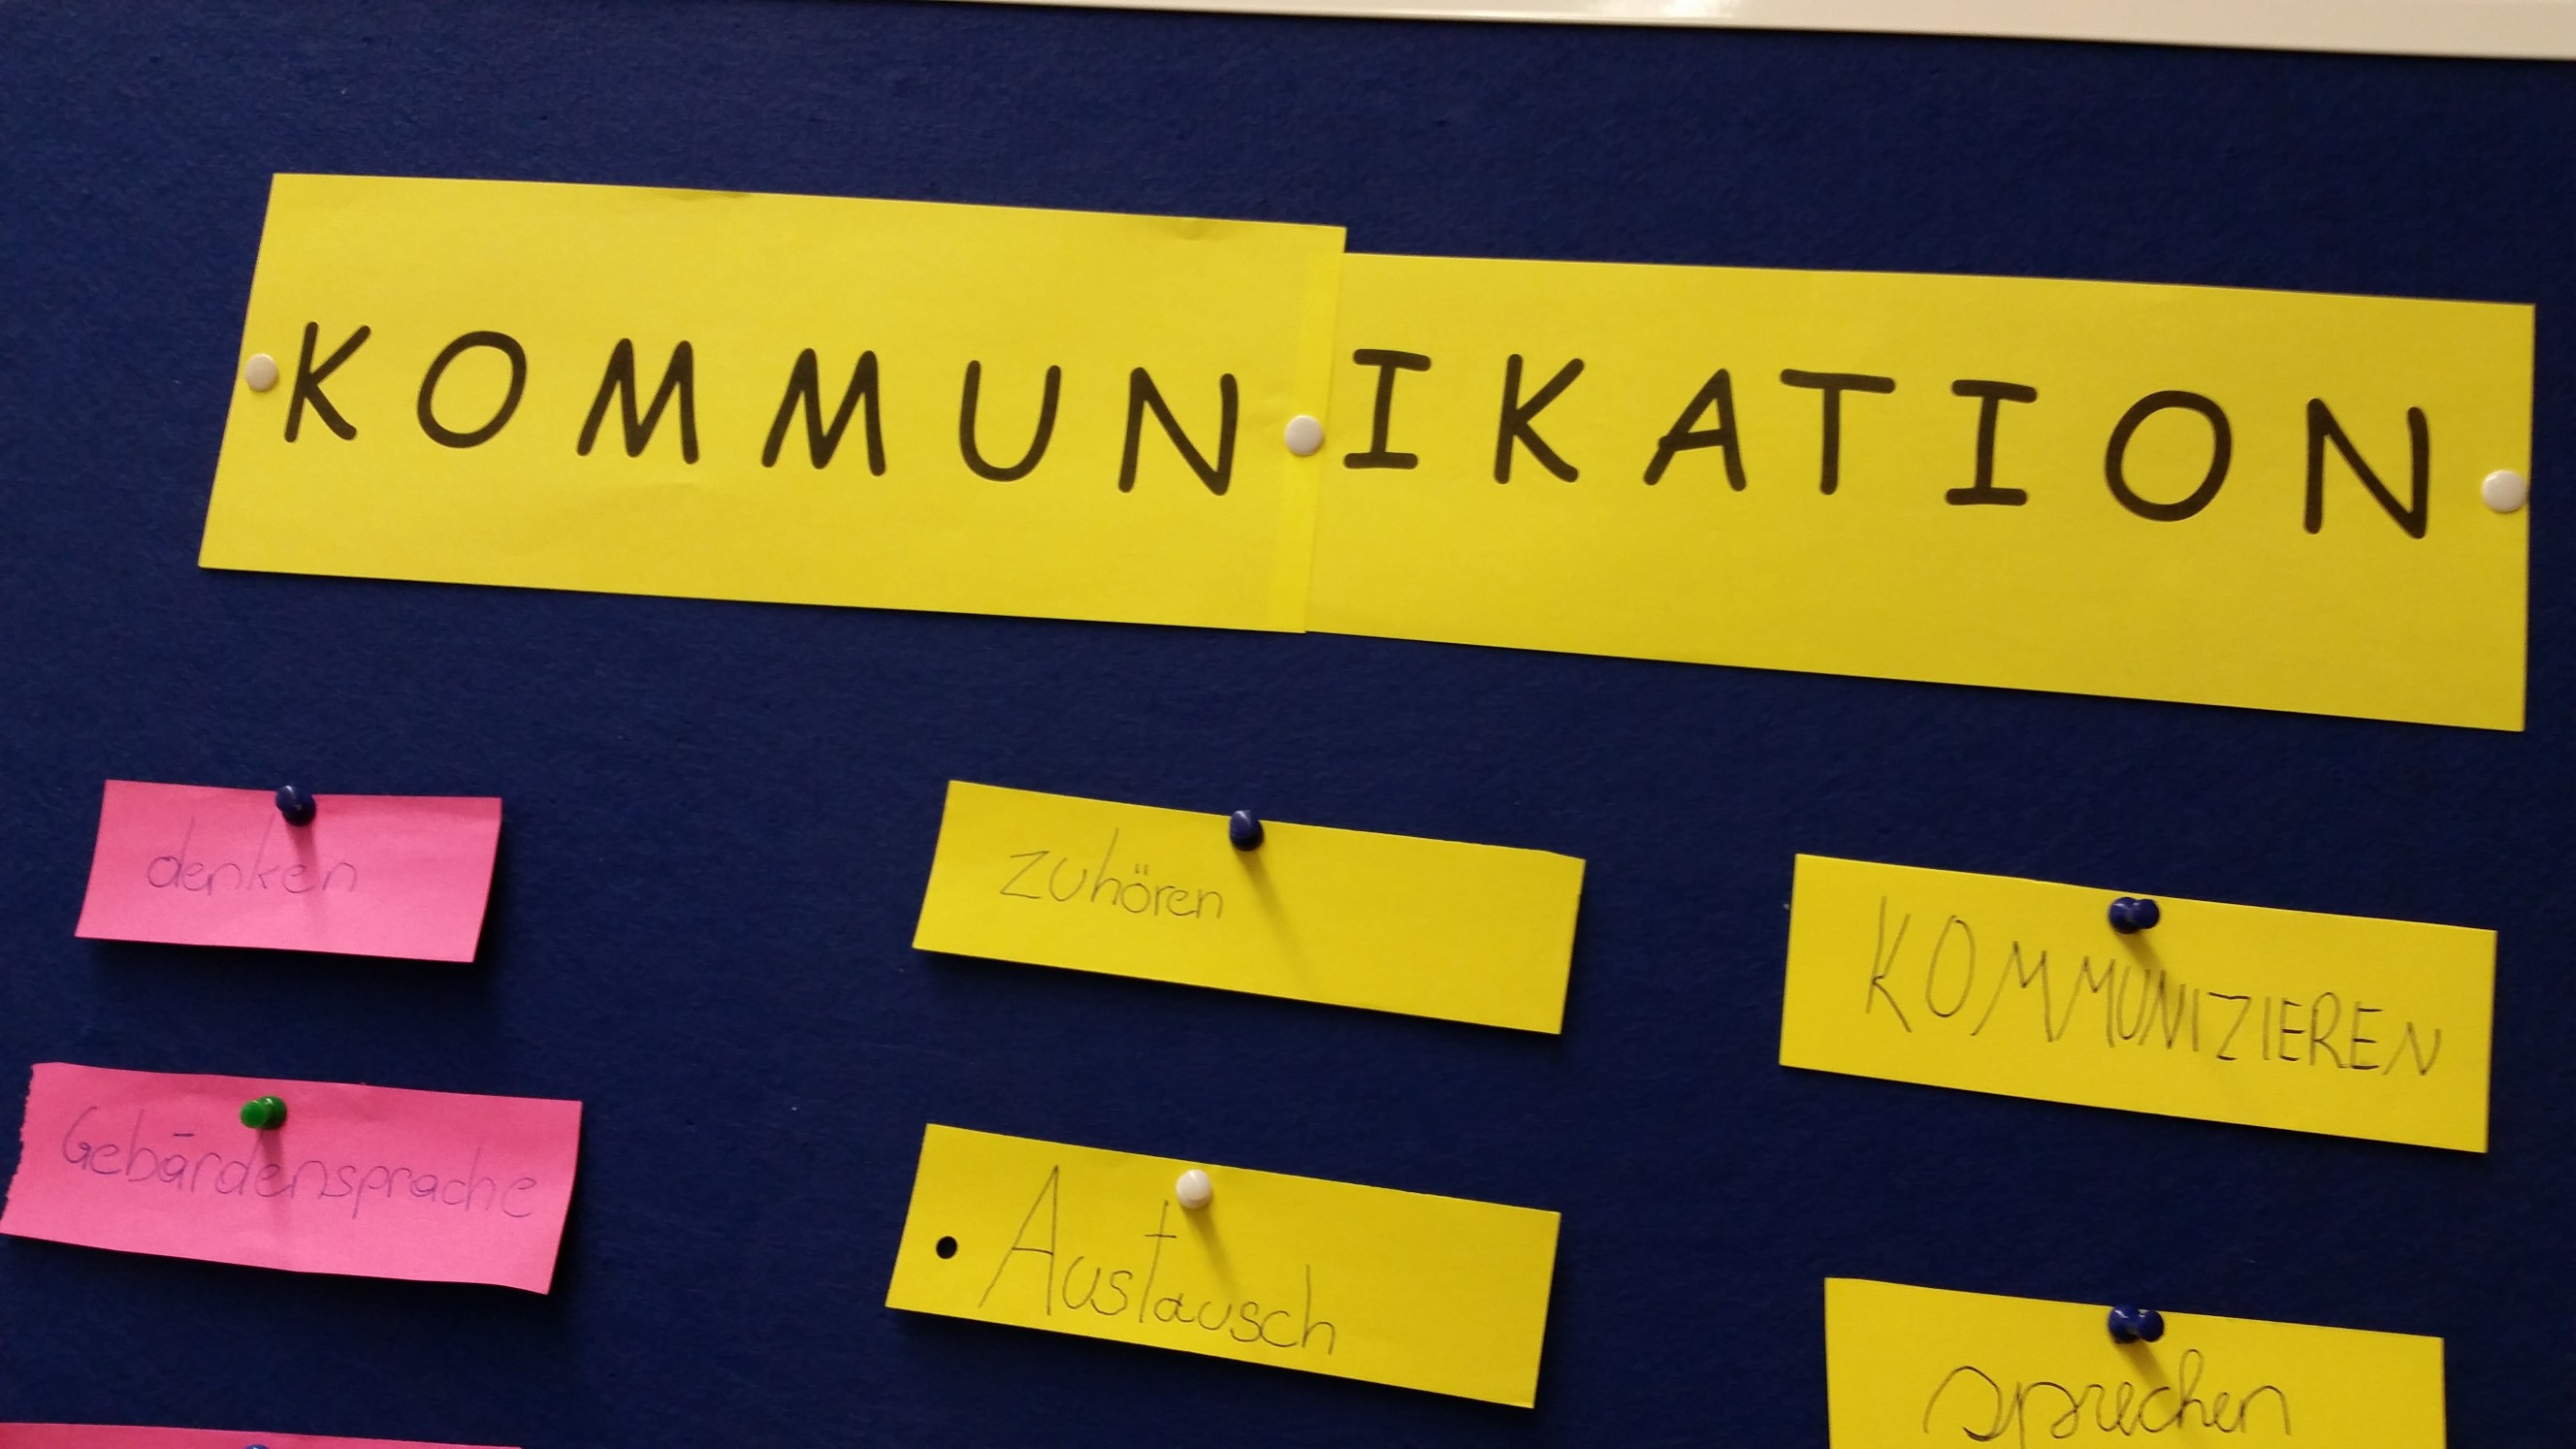 KOMMUNIKATION
denken
zuhören
KOMMUNIZIEREN
Gebärdensprache
Austausch
sprechen